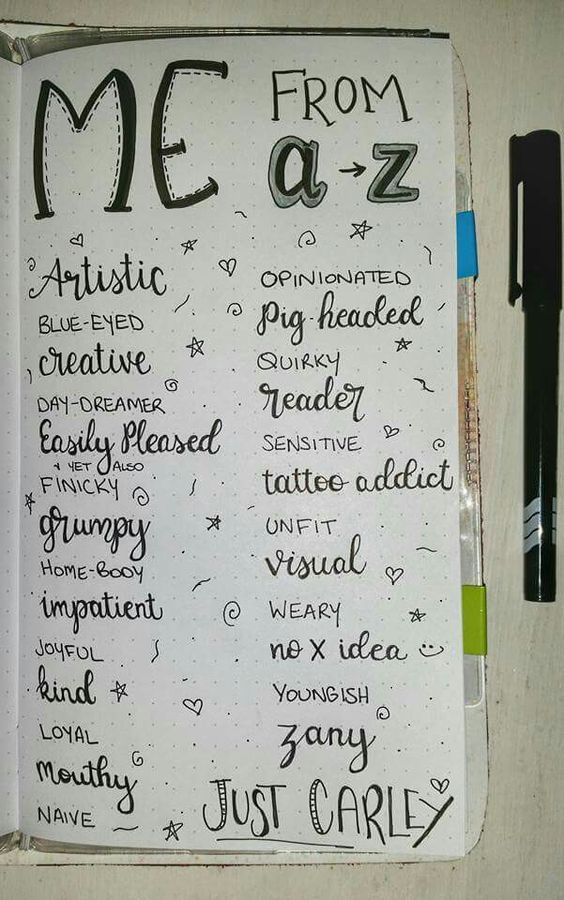 ME FROM
a → z
Artistic
BLUE-EYED
creative
DAY-DREAMER
Easily Pleased
+ YET ALSO
FINICKY
grumpy
HOME-BODY
impatient
JOYFUL
kind
LOYAL
mouthy
NAIVE
OPINIONATED
Pig-headed
QUIRKY
reader
SENSITIVE
tattoo addict
UNFIT
visual
WEARY
no X idea
YOUNGISH
zany
JUST CARLEY